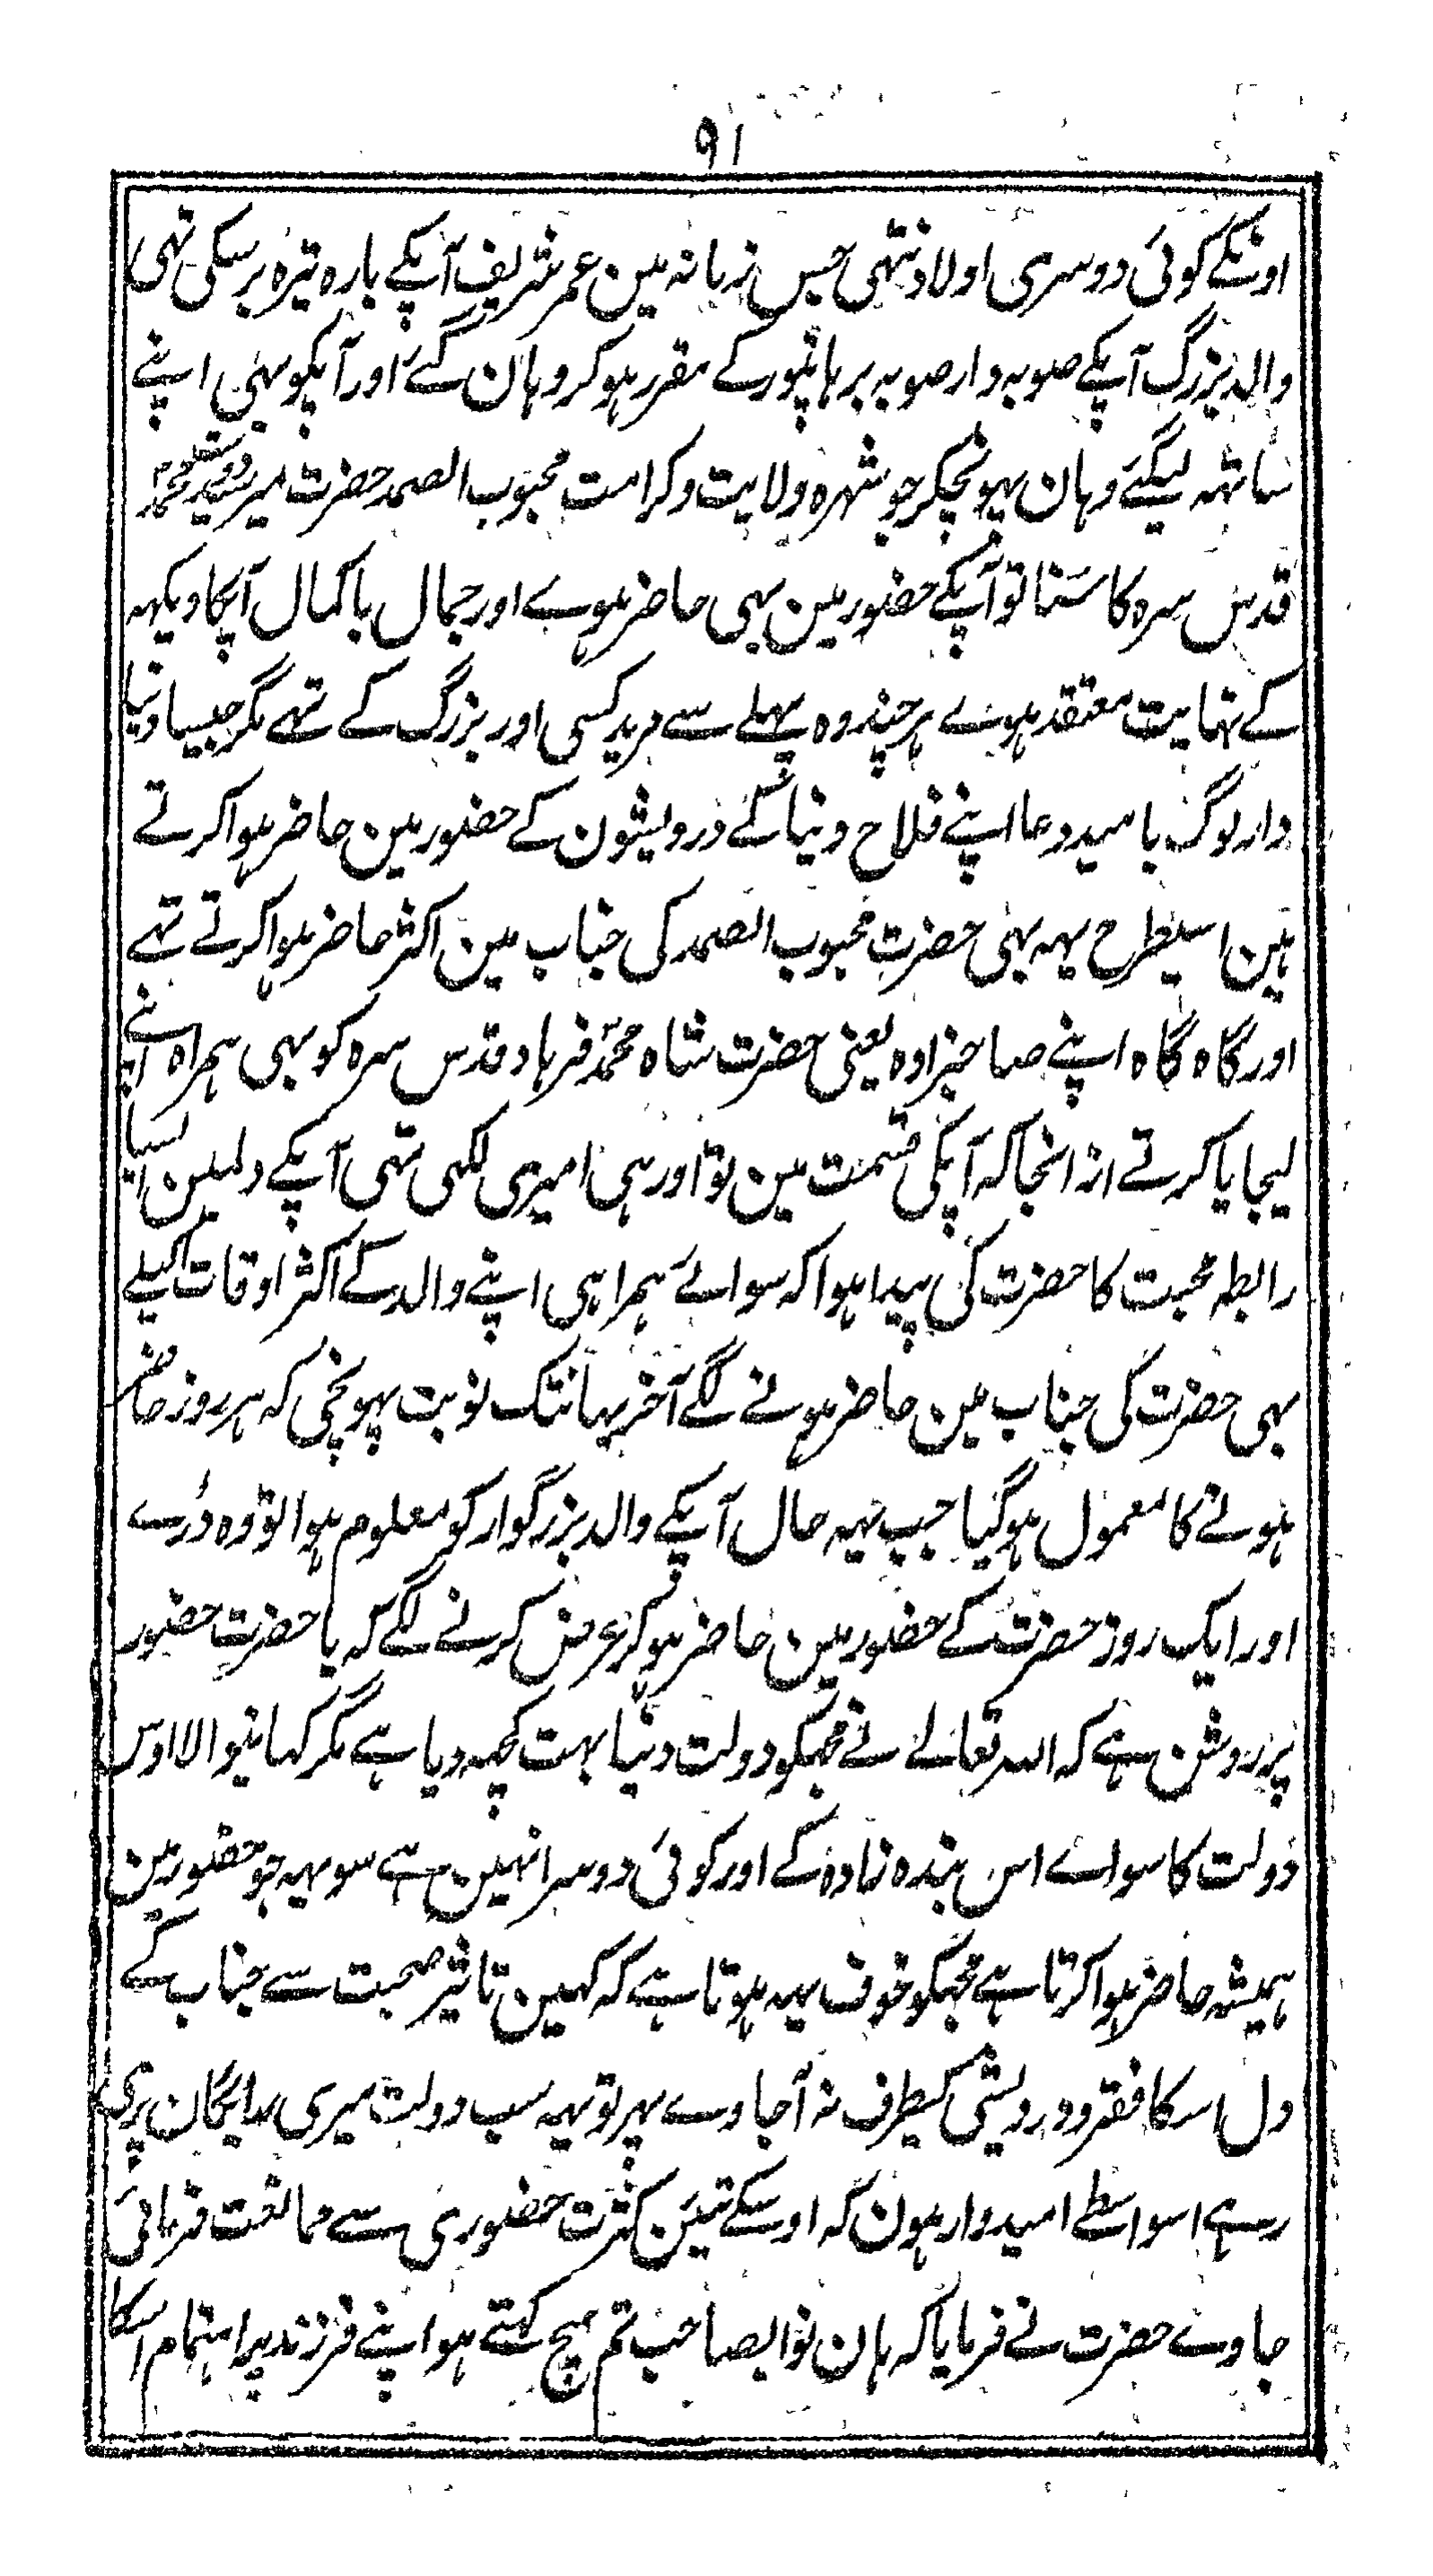 ۹۱
اونکے کوئی دوسری اولاد نتھی جس زمانہ مین عمر شریف آپکے بارہ تیرہ برسکی تہی
والد بزرگ آپکے صوبہ دار صوبہ برہانپور کے مقرر ہوکر وہان گئے اور آپکو بہی اپنے
ساتہہ لیگئے وہان پہونچکر جو شہرہ ولایت و کرامت محبوب الصمد حضرت میر سید محمد
قدس سرہ کا سنا تو آپکے حضور مین بہی حاضر ہوے اور جمال باکمال آپکا دیکہہ
کے نہایت معتقد ہوے ہرچند وہ پہلے سے مرید کسی اور بزرگ کے تہے مگر جیسا دنیا
دار لوگ بامید دعا اپنے فلاح دنیا کے درویشون کے حضور مین حاضر ہوا کرتے
ہین اسیطرح یہہ بہی حضرت محبوب الصمد کی جناب مین اکثر حاضر ہوا کرتے تہے
اور گاہ گاہ اپنے صاحبزادہ یعنی حضرت شاہ محمد فرہاد قدس سرہ کو بہی ہمراہ اپنے
لیجایا کرتے از انجا کہ آپکی قسمت مین تو اور ہی امیری لکہی تہی آپکے دلمین ایسا
رابطہ محبت کا حضرت کی پیدا ہوا کہ سوائے ہمراہی اپنے والد کے اکثر اوقات اکیلے
بہی حضرت کی جناب مین حاضر ہونے لگے آخر یہانتک نوبت پہونچی کہ ہر روز حاضر
ہونے کا معمول ہوگیا جب یہہ حال آپکے والد بزرگوار کو معلوم ہوا تو وہ ڈرے
اور ایک روز حضرت کے حضور مین حاضر ہوکر عرض کرنے لگے کہ یا حضرت حضور
پر روشن ہے کہ اللہ تعالے نے مجہکو دولت دنیا بہت کچہہ دیا ہے مگر کہانیوالا اوس
دولت کا سواے اس بندہ زادہ کے اور کوئی دوسرا نہین ہے سو یہہ جو حضور مین
ہمیشہ حاضر ہوا کرتا ہے مجہکو خوف یہہ ہوتا ہے کہ کہین تاثیر صحبت سے جناب کے
دل اسکا فقر و درویشی کیطرف نہ آجاوے پہر تو یہہ سب دولت میری رایگان پڑی
رہے اسواسطے امیدوار ہون کہ اوسکے تئین کثرت حضوری سے ممانعت فرمائی
جاوے حضرت نے فرمایا کہ ہان نوابصاحب تم سچ کہتے ہو اپنے فرزند پر اہتمام اسکا